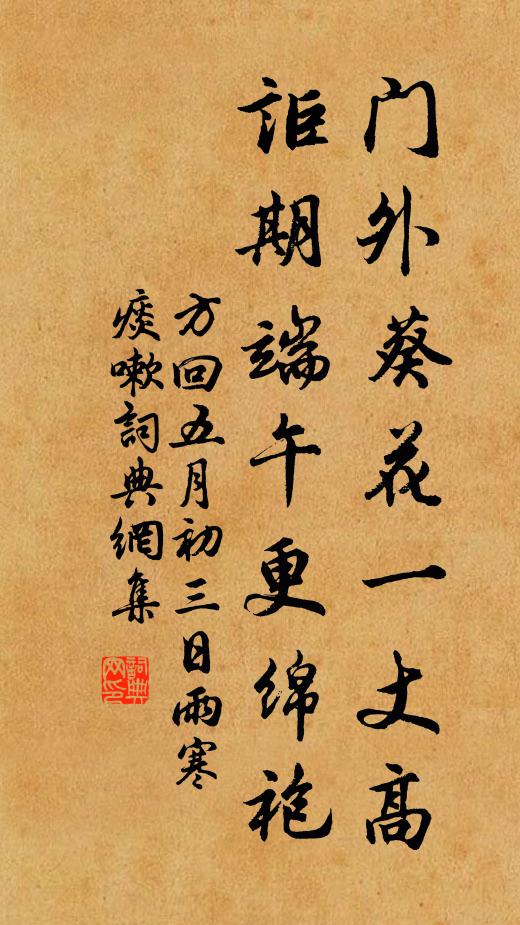 门外葵花一丈高
詎期端午更绵袍
方回五月初三日雨寒
痰嗽詞典網集
詞典网印